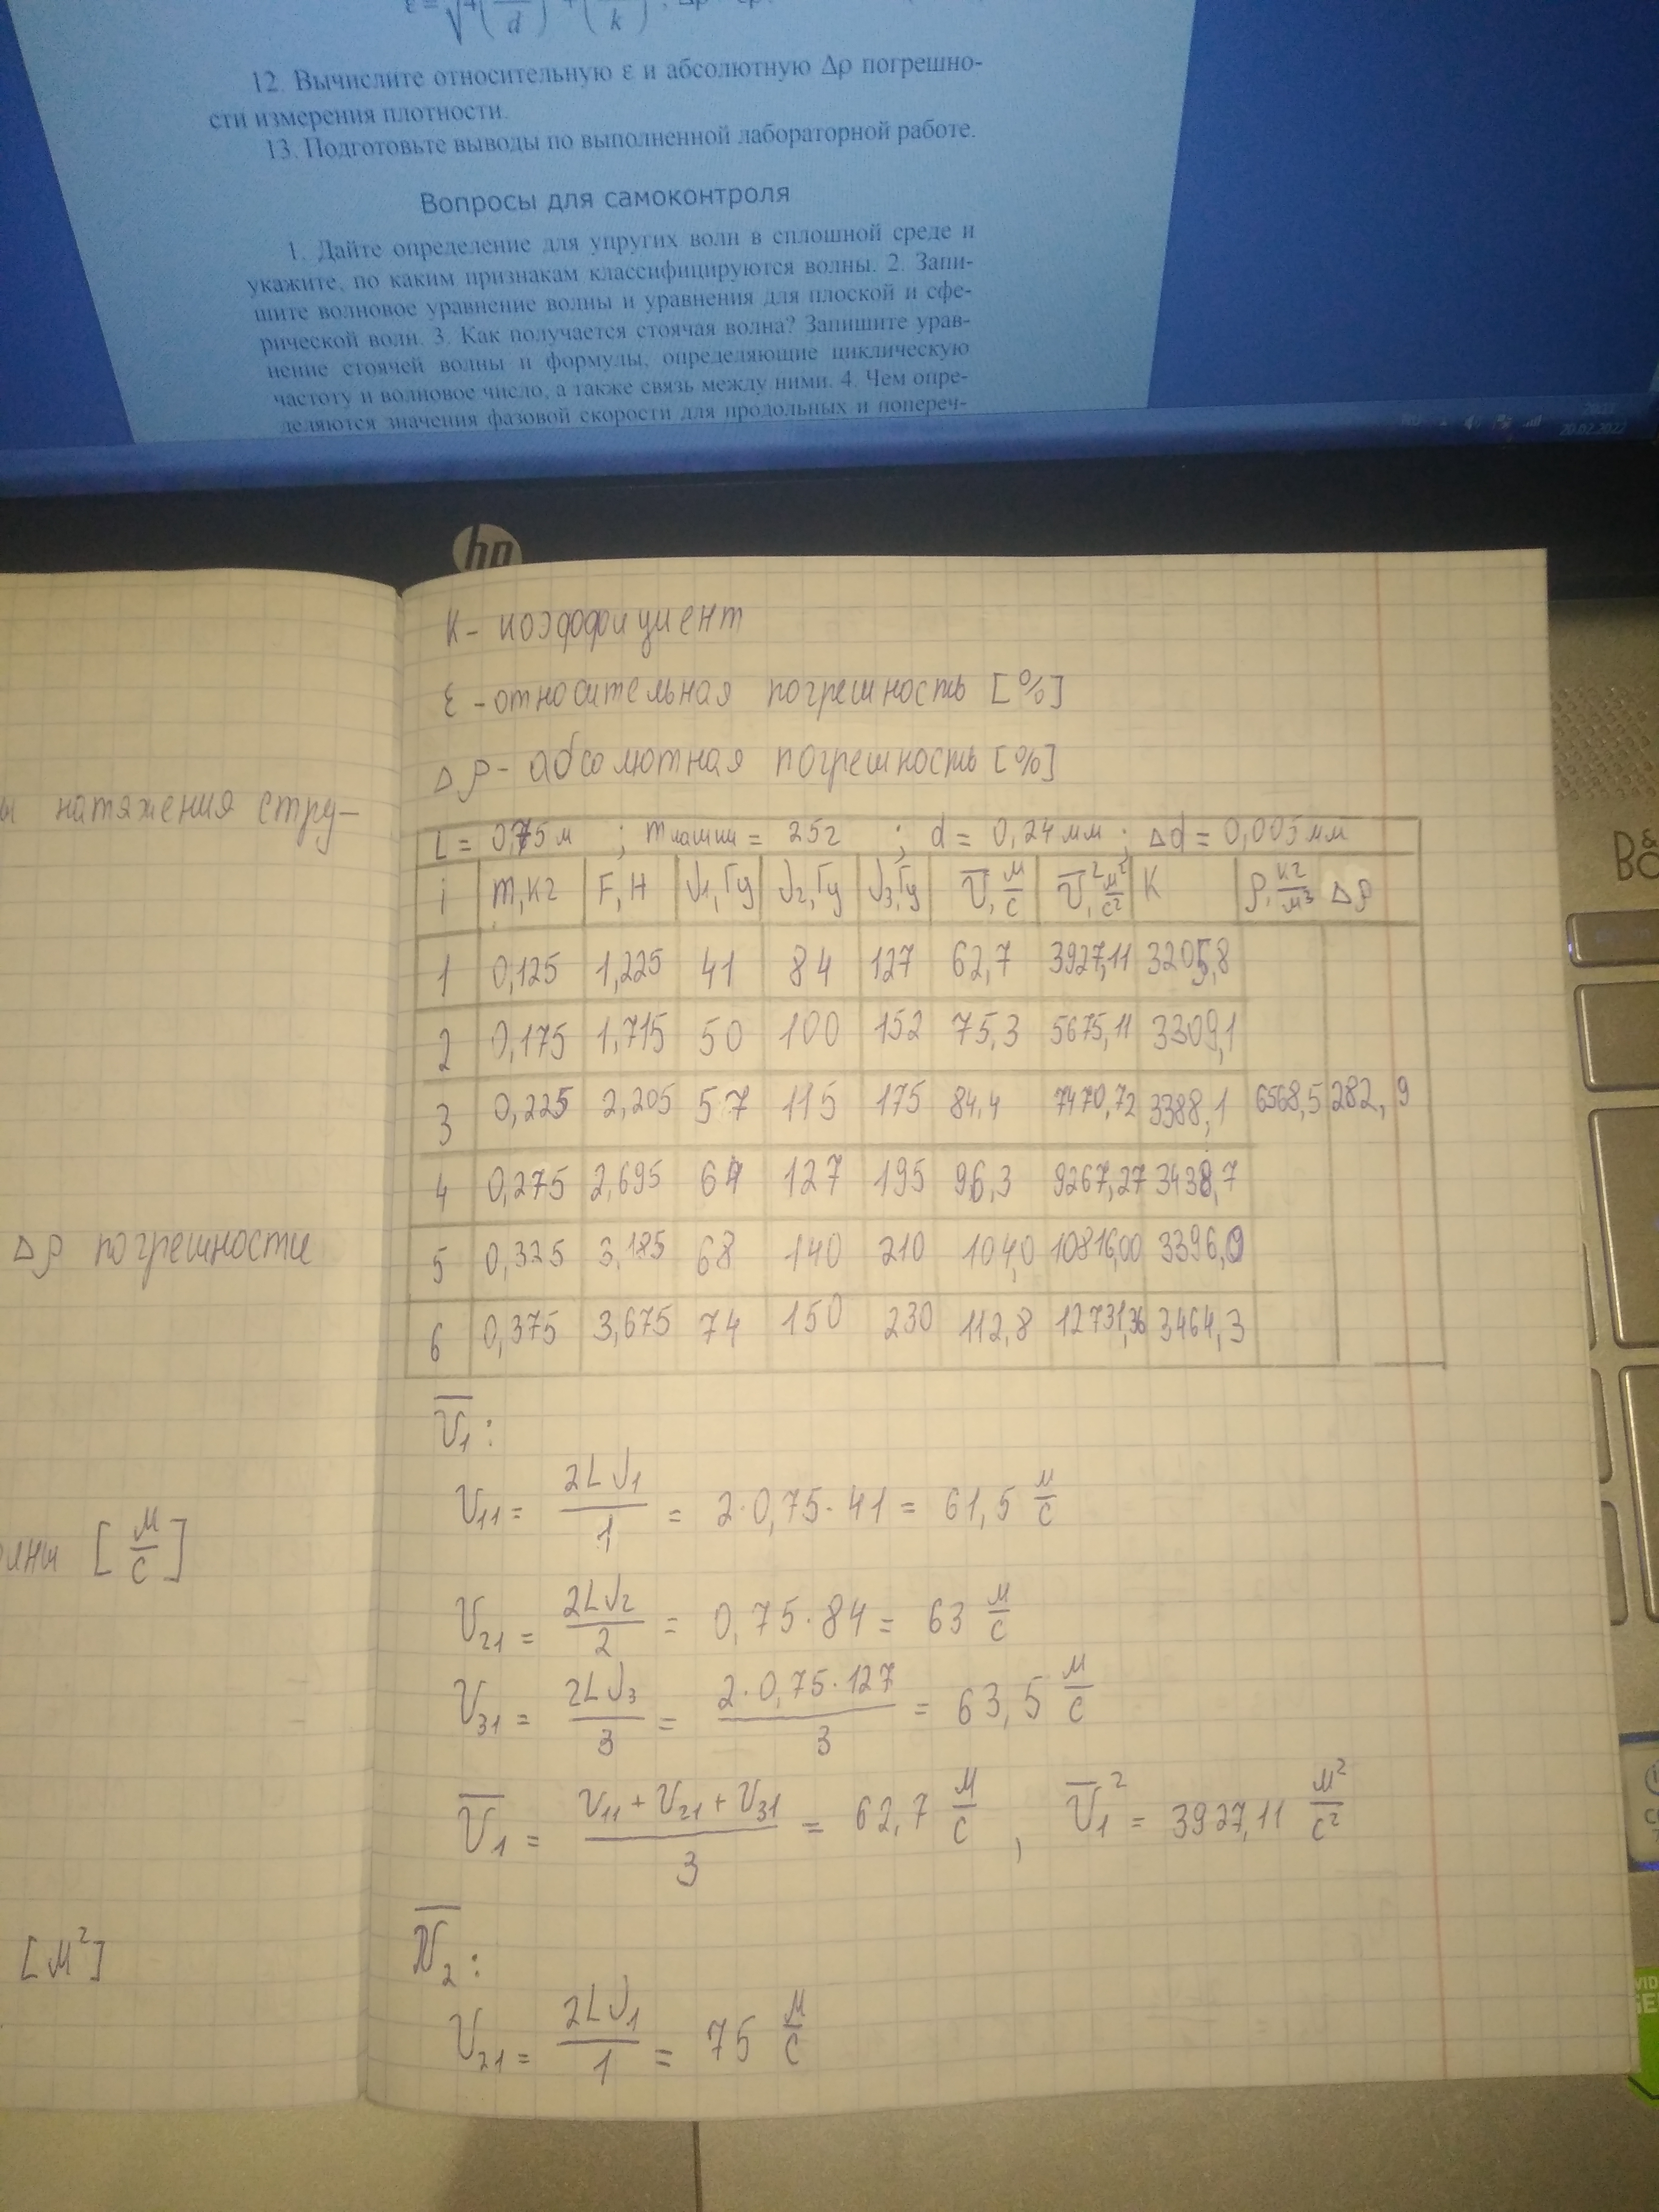 12. Вычислите относительную ε и абсолютную Δρ погрешно-
сти измерения плотности.
13. Подготовьте выводы по выполненной лабораторной работе.
Вопросы для самоконтроля
1. Дайте определение для упругих волн в сплошной среде и
укажите, по каким признакам классифицируются волны. 2. Запи-
шите волновое уравнение волны и уравнения для плоской и сфе-
рической волн. 3. Как получается стоячая волна? Запишите урав-
нение стоячей волны и формулы, определяющие циклическую
частоту и волновое число, а также связь между ними. 4. Чем опре-
деляются значения фазовой скорости для продольных и попереч-
20.02.2022
hp
K - коэффициент
ε - относительная погрешность [%]
Δρ - абсолютная погрешность [%]
натяжения стру-
Δρ погрешности
[м/с]
[м²]
L = 0,75 м ; m чашки = 25 г ; d = 0,24 мм ; Δd = 0,005 мм
i m, кг F, Н ν1, Гц ν2, Гц ν3, Гц v̅, м/с v̅², м²/с² K ρ, кг/м³ Δρ
1 0,125 1,225 41 84 127 62,7 3927,11 3205,8
2 0,175 1,715 50 100 152 75,3 5675,11 3309,1
3 0,225 2,205 57 115 175 84,4 7470,72 3388,1 6568,5 282,9
4 0,275 2,695 64 127 195 96,3 9267,27 3438,7
5 0,325 3,185 68 140 210 104,0 10816,00 3396,0
6 0,375 3,675 74 150 230 112,8 12731,36 3464,3
v̅1 :
v11 = 2Lν1/1 = 2·0,75·41 = 61,5 м/с
v21 = 2Lν2/2 = 0,75·84 = 63 м/с
v31 = 2Lν3/3 = 2·0,75·127/3 = 63,5 м/с
v̅1 = (v11 + v21 + v31)/3 = 62,7 м/с , v̅1² = 3927,11 м²/с²
v̅2 :
v21 = 2Lν1/1 = 75 м/с